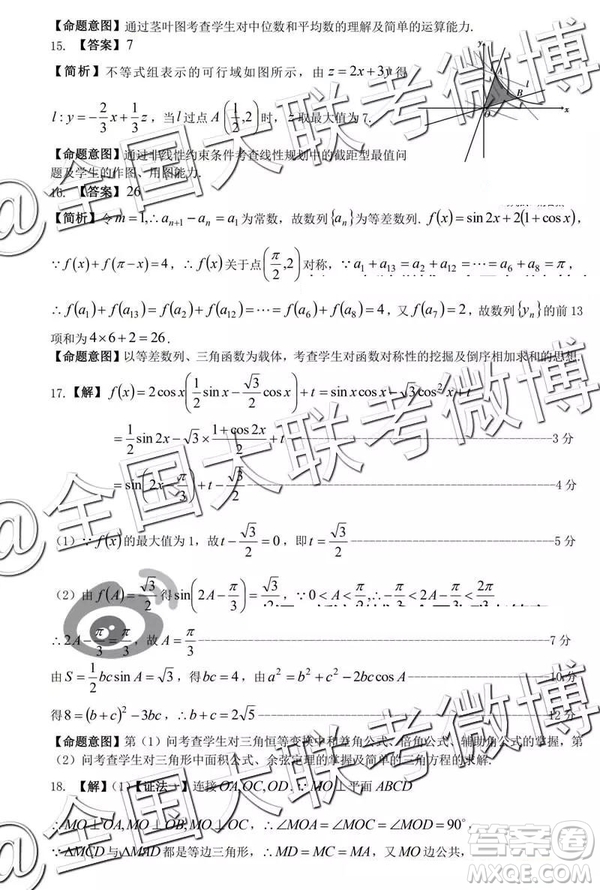 【命题意图】通过茎叶图考查学生对中位数和平均数的理解及简单的运算能力.
15. 【答案】7
【简析】不等式组表示的可行域如图所示，由 z=2x+3y 得
l:y=-2/3x+1/3z，当 l 过点 A(1/2,2)时，z 取最大值为 7.
【命题意图】通过非线性约束条件考查线性规划中的截距型最值问
题及学生的作图、用图能力.
16. 【答案】26
【简析】令 m=1,∴a_{n+1}-a_n=a_1 为常数，故数列{a_n}为等差数列. f(x)=sin2x+2(1+cosx),
∵f(x)+f(π-x)=4，∴f(x)关于点(π/2,2)对称，∵a_1+a_13=a_2+a_12=⋯=a_6+a_8=π，
∴f(a_1)+f(a_13)=f(a_2)+f(a_12)=⋯=f(a_6)+f(a_8)=4，又 f(a_7)=2，故数列{y_n}的前 13
项和为 4×6+2=26.
【命题意图】以等差数列、三角函数为载体，考查学生对函数对称性的挖掘及倒序相加求和的思想.
17. 【解】f(x)=2cosx(1/2sinx-√3/2cosx)+t=sinxcosx-√3cos²x+t
=1/2sin2x-√3×(1+cos2x)/2+t 3 分
=sin(2x-π/3)+t-√3/2 4 分
（1）∵f(x)的最大值为 1，故 t-√3/2=0，即 t=√3/2 5 分
（2）由 f(A)=√3/2 得 sin(2A-π/3)=√3/2,∵0<A<π/2,∴-π/3<2A-π/3<2π/3
∴2A-π/3=π/3，故 A=π/3 7 分
由 S=1/2bcsinA=√3，得 bc=4，由 a²=b²+c²-2bccosA 10 分
得 8=(b+c)²-3bc，∴b+c=2√5 12 分
【命题意图】第（1）问考查学生对三角恒等变换中和差角公式、倍角公式、辅助角公式的掌握，第
（2）问考查学生对三角形中面积公式、余弦定理的掌握及简单的三角方程的求解.
18. 【解】（1）【证法一】连接 OA,OC,OD.∵MO⊥平面 ABCD
∴MO⊥OA,MO⊥OB,MO⊥OC，∴∠MOA=∠MOC=∠MOD=90°，
∵△MCD 与△MAD 都是等边三角形，∴MD=MC=MA，又 MO 边公共，
@全国大联考微博
答案圈